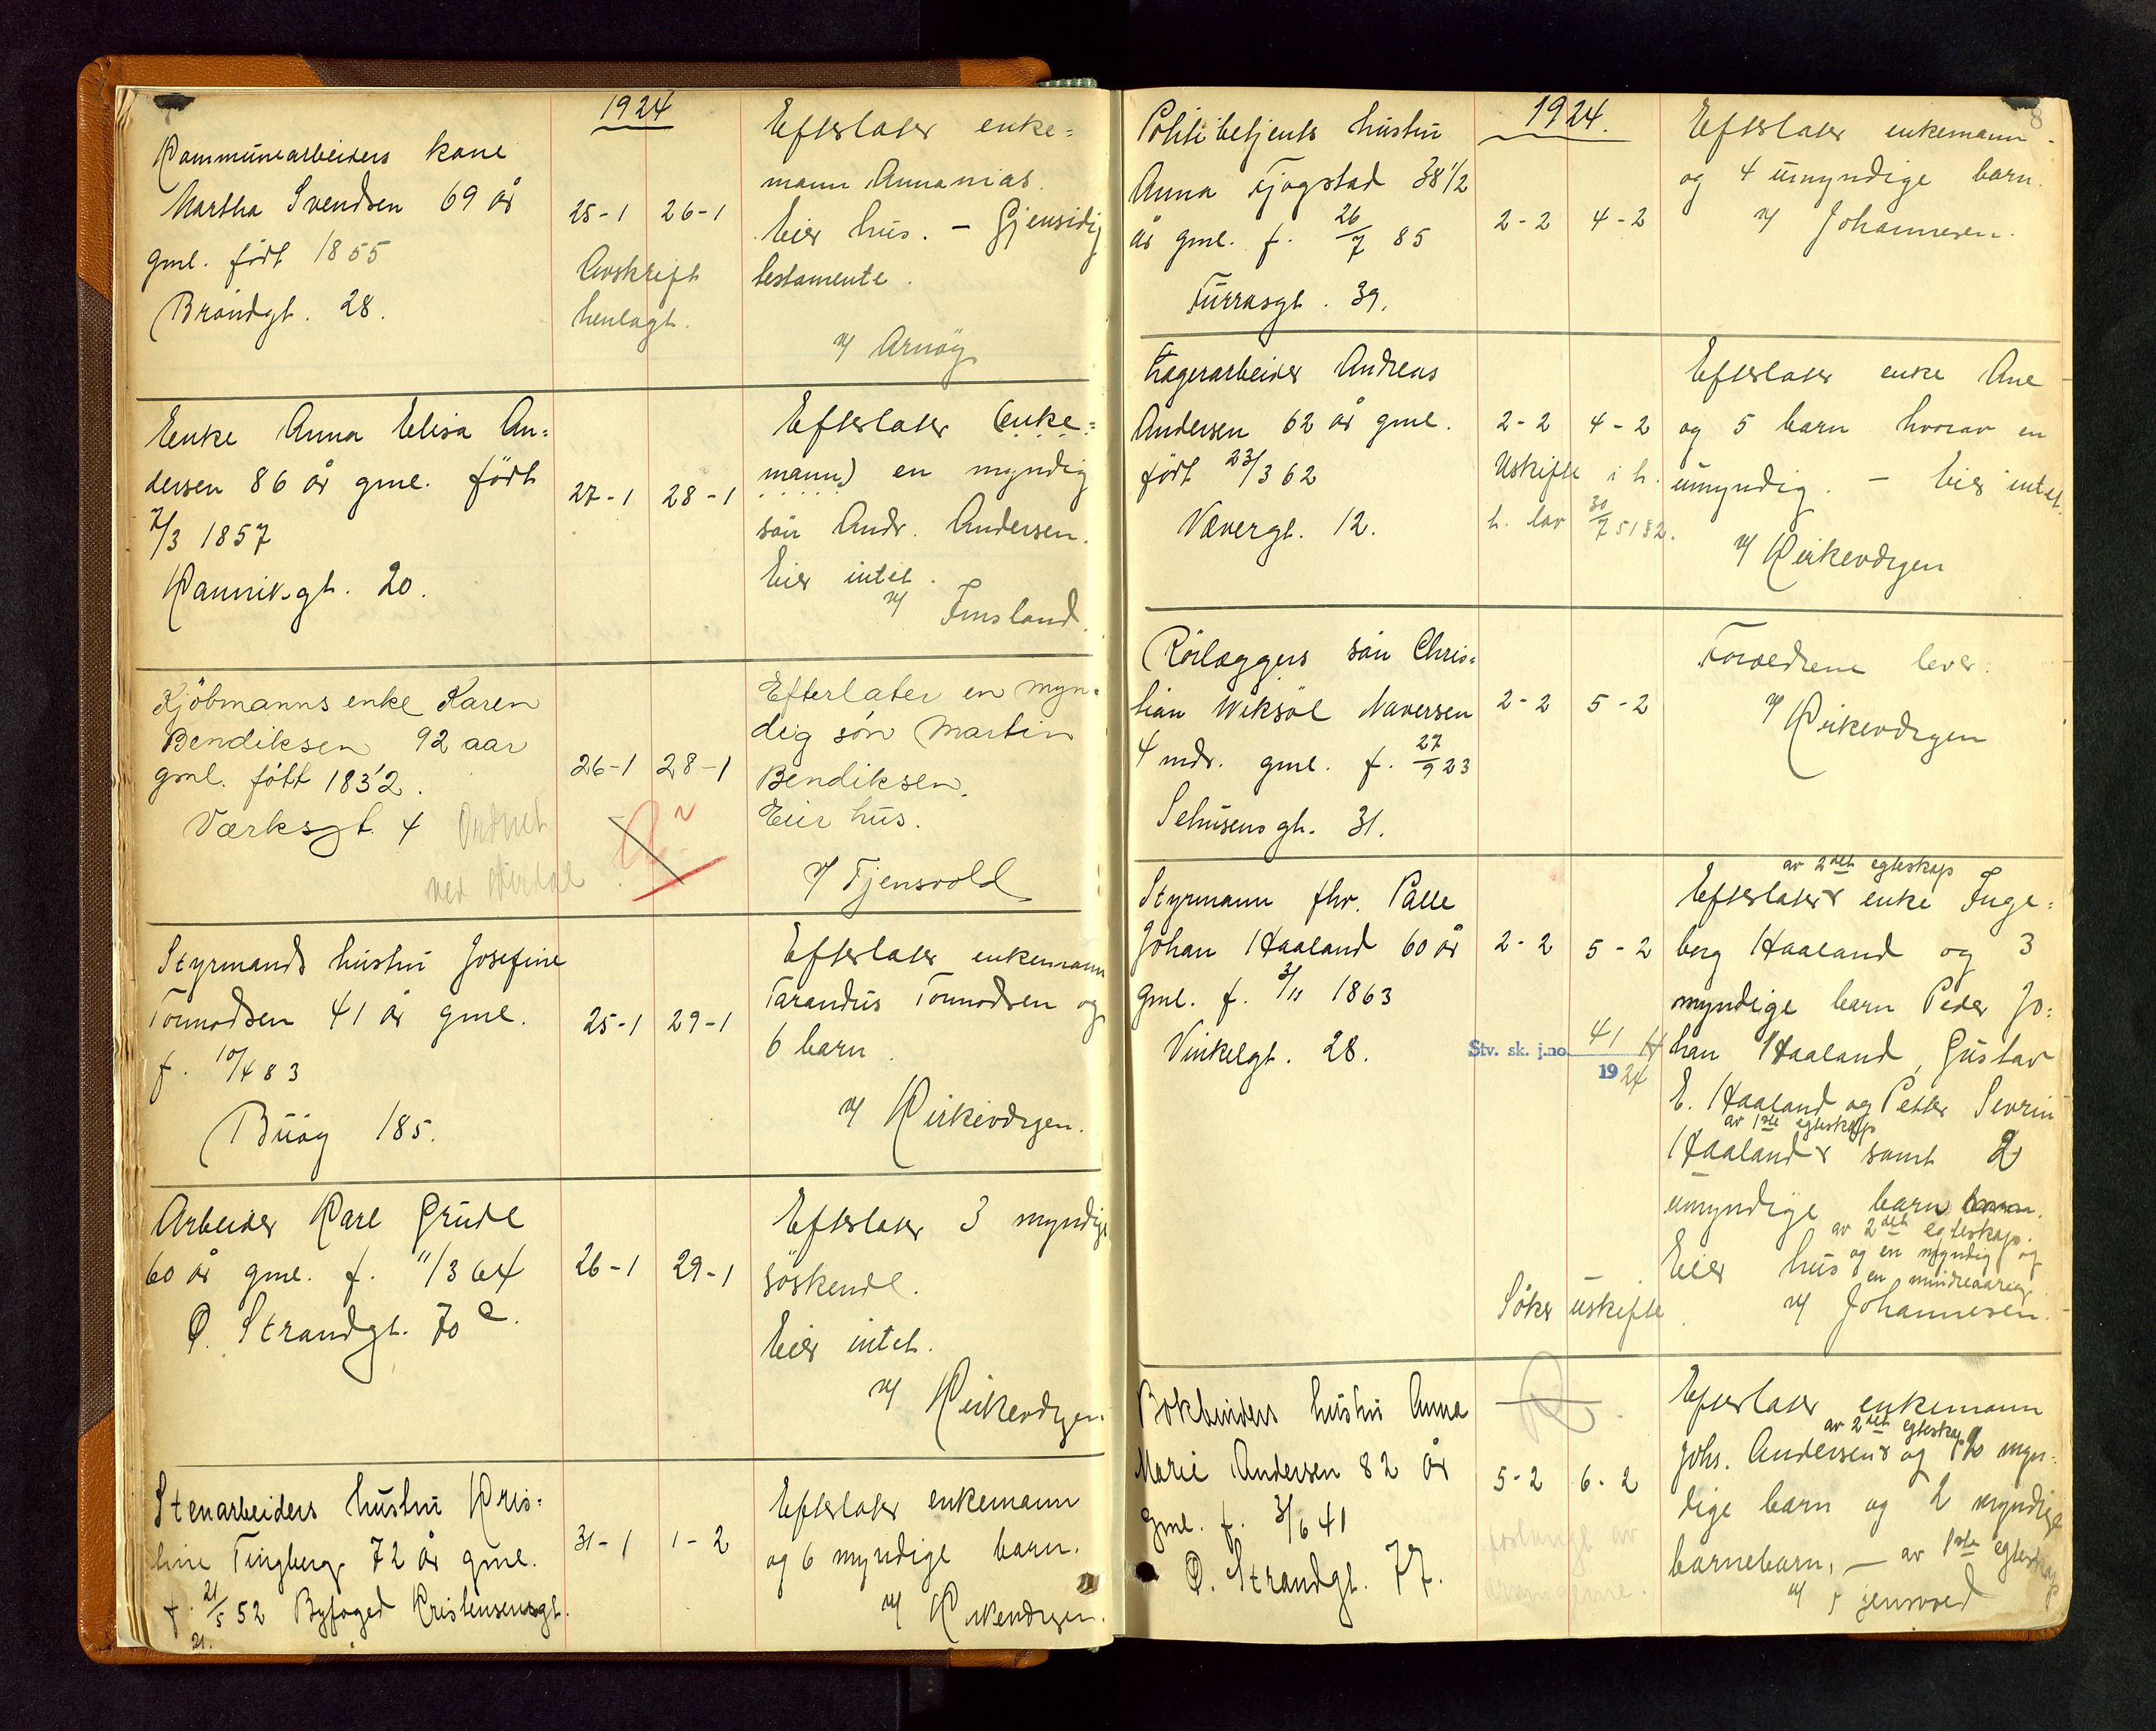 1924
Kommunearbeiders kone
Martha Svendsen 69 år
gml. født 1855
Brandgt. 28.
25-1 26-1
Avskrift
henlagt.
Efterlater enke=
mann Annanias.
Eier hus. - Gjensidig
testamente.
v/ Arnøy
Enke Anna Elisa An=
dersen 86 år gml. født
7/3 1857
Kannikgt. 20.
27-1 28-1
Efterlater (enke=
mann) en myndig
søn Andr. Andersen.
Eier intet.
v/ Imsland.
Kjöbmanns enke Karen
Bendiksen 92 aar
gml. fött 1832.
Værksgt. 4
Ordnet
ved
26-1 28-1
Efterlater en myn=
dig søn Martin
Bendiksen.
Eier hus.
v/ Tjensvold
Styrmands hustru Josefine
Tonnodsen 41 år gml.
f. 10/4 83
Buøy 185.
25-1 29-1
Efterlater enkemann
Tarandus Tonnodsen og
6 barn.
v/ Kirkevergen.
Arbeider Karl Grude
60 år gml. f. 11/3 64
Ø. Strandgt. 70 c.
26-1 29-1
Efterlater 3 myndige
søskende.
Eier intet.
v/ Kirkevergen
Stenarbeiders hustru Kris=
tine Tingberg 72 år gml.
f. 21/5 52 Byfoged Kristensensgt.
21.
31-1 1-2
Efterlater enkemann
og 6 myndige barn.
v/ Kirkevergen.
8
1924.
Politibetjents hustru
Anna Fjogstad 38 1/2
år gml. f. 26/7 85
Furrasgt. 39.
2-2 4-2
Efterlater enkemann
og 4 umyndige barn.
v/ Johannesen.
Lagerarbeider Andreas
Andersen 62 år gml.
født 23/3 62
Vævergt. 12.
2-2 4-2
Uskifte i h.
t. lov 30/7 5182.
Efterlater enke Ane
og 5 barn hvorav en
umyndig. - Eier intet.
v/ Kirkevergen
Rørlæggers søn Chris=
tian Wiksøl Naversen
4 mdr. gml. f. 27/9 23
Sehusensgt. 31.
2-2 5-2
Forældrene lever.
v/ Kirkevergen
Styrmann fhv. Palle
Johan Haaland 60 år
gml. f. 3/11 1863
Vinkelgt. 28.
2-2 5-2
Stv. sk. j.no. 41 H
1924
Søker uskifte
av 2det egteskap
Efterlater enke Inge=
borg Haaland og 3
myndige barn Peder Jo=
han Haaland, Gustav
E. Haaland og Petter Sevrin
av 1ste egteskap
Haaland samt 2
umyndige barn barn.
av 2det egteskap.
Eier hus og en myndig og
en mindreaarig
v/ Johannesen.
Bokbinders hustru Anna
Marie Andersen 82 år
gml. f. 3/6 41
Ø. Strandgt. 77.
5-2 6-2
forlangt av
arvingerne.
Efterlater enkemann
av 2det egteskap
Johs. Andersen og 2 myn=
dige barn og 2 myndige
barnebarn, - av 1ste egteskap
v/ Tjensvold